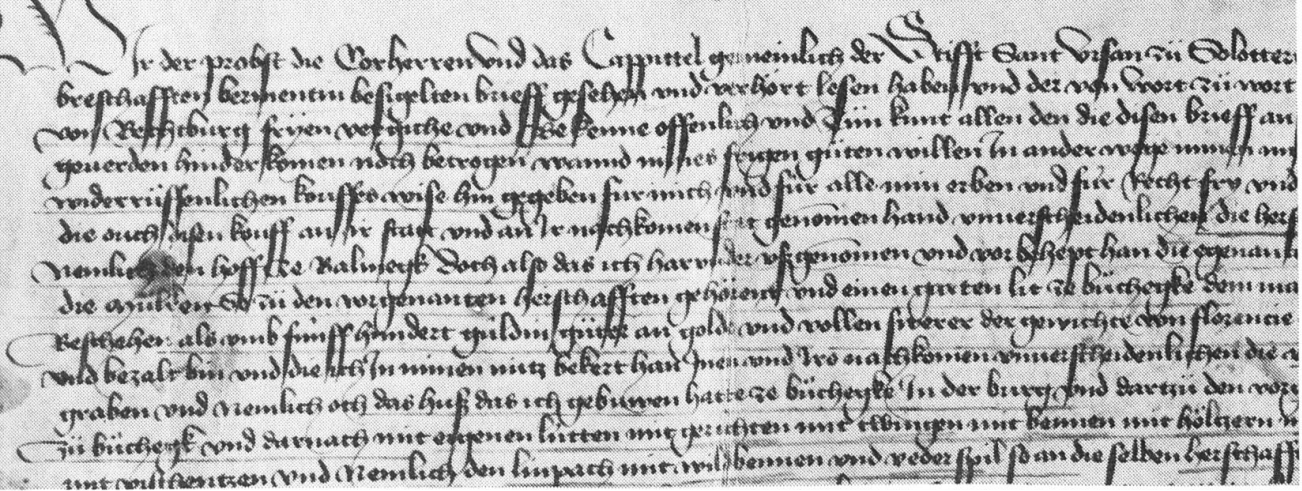 Wir der probst die Corherren vnd das Cappittel gemeinlich der Stifft Sant Vrsen zü Solotter
bresthafften berment in besigelten brieff gesehen vnd verhört lesen haben vnd der von wort zü wort
von Bechburg fryen vergiche vnd bekenne offenlich vnd tün kunt allen den die disen brieff an
geuerden hinderkomen noch betrogen wannd mines frigen güten willen In ander wege minen
widerrüffenlichen kouffes wise hin gegeben für mich vnd für alle min erben vnd für Recht fry vnd
die ouch disen kouff an ir statt vnd an Ir nachkomen statt genomen hand vnuerscheidenlichen die hers
Nemlich den hoff ze Balmegk doch also das ich har vsgenomen vnd vor behept han die egenan
die mülinen So zü den vorgenanten herschafften gehörent vnd einen garten lit ze büchegke dem
Beschehen als vmb fünff hundert guldin güter an golde vnd vollen swerer der gewichte von florencie
vnd bezalt bin vnd die ich In minen nutz bekert han Inen vnd Iro nachkomen vnuerscheidenlichen die
graben vnd Nemlich och das huß das ich gebuwen hatte ze büchegke In der burg vnd dartzü den vor
zü büchegk vnd darnach mit eigenen lütten mit gerichten mit twingen mit bennen mit höltzern
mit vischentzen vnd Nemlich den limpach mit wildbennen vnd vederspil so an die selben herschaff